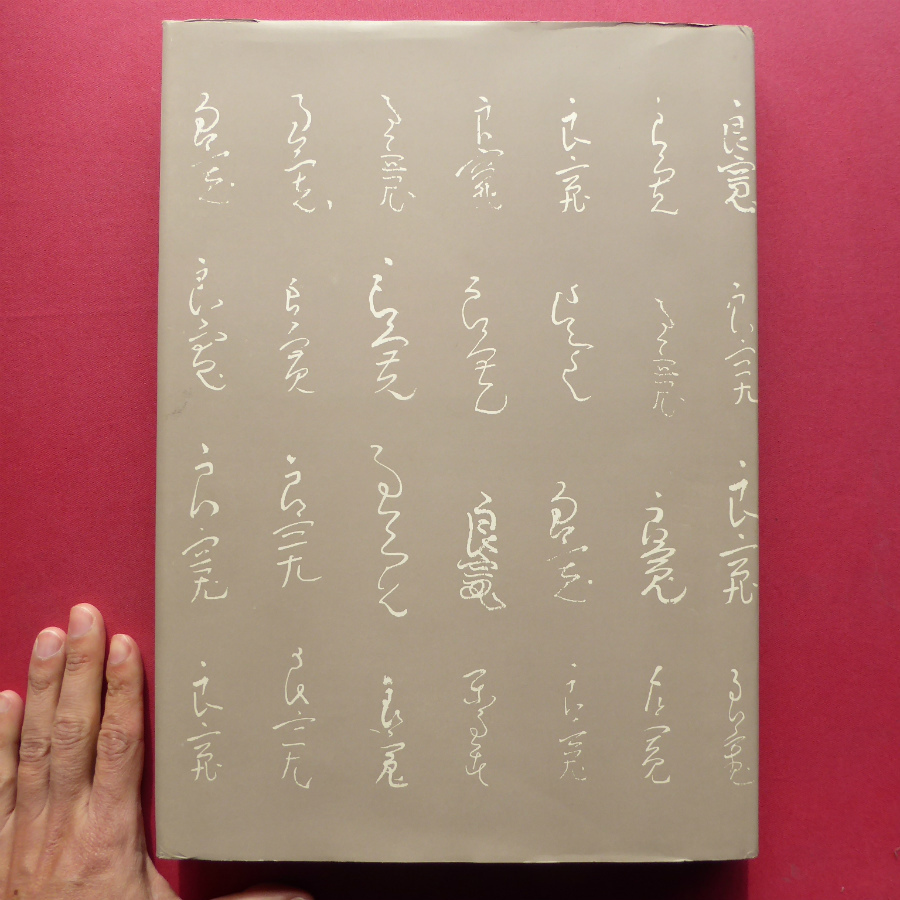 良寛 良寛 良寛 良寛
良寛 良寛 良寛 良寛
良寛 良寛 良寛
良寛 良寛 良寛
良寛 良寛 良寛
良寛 良寛 良寛 良寛
良寛 良寛 良寛 良寛